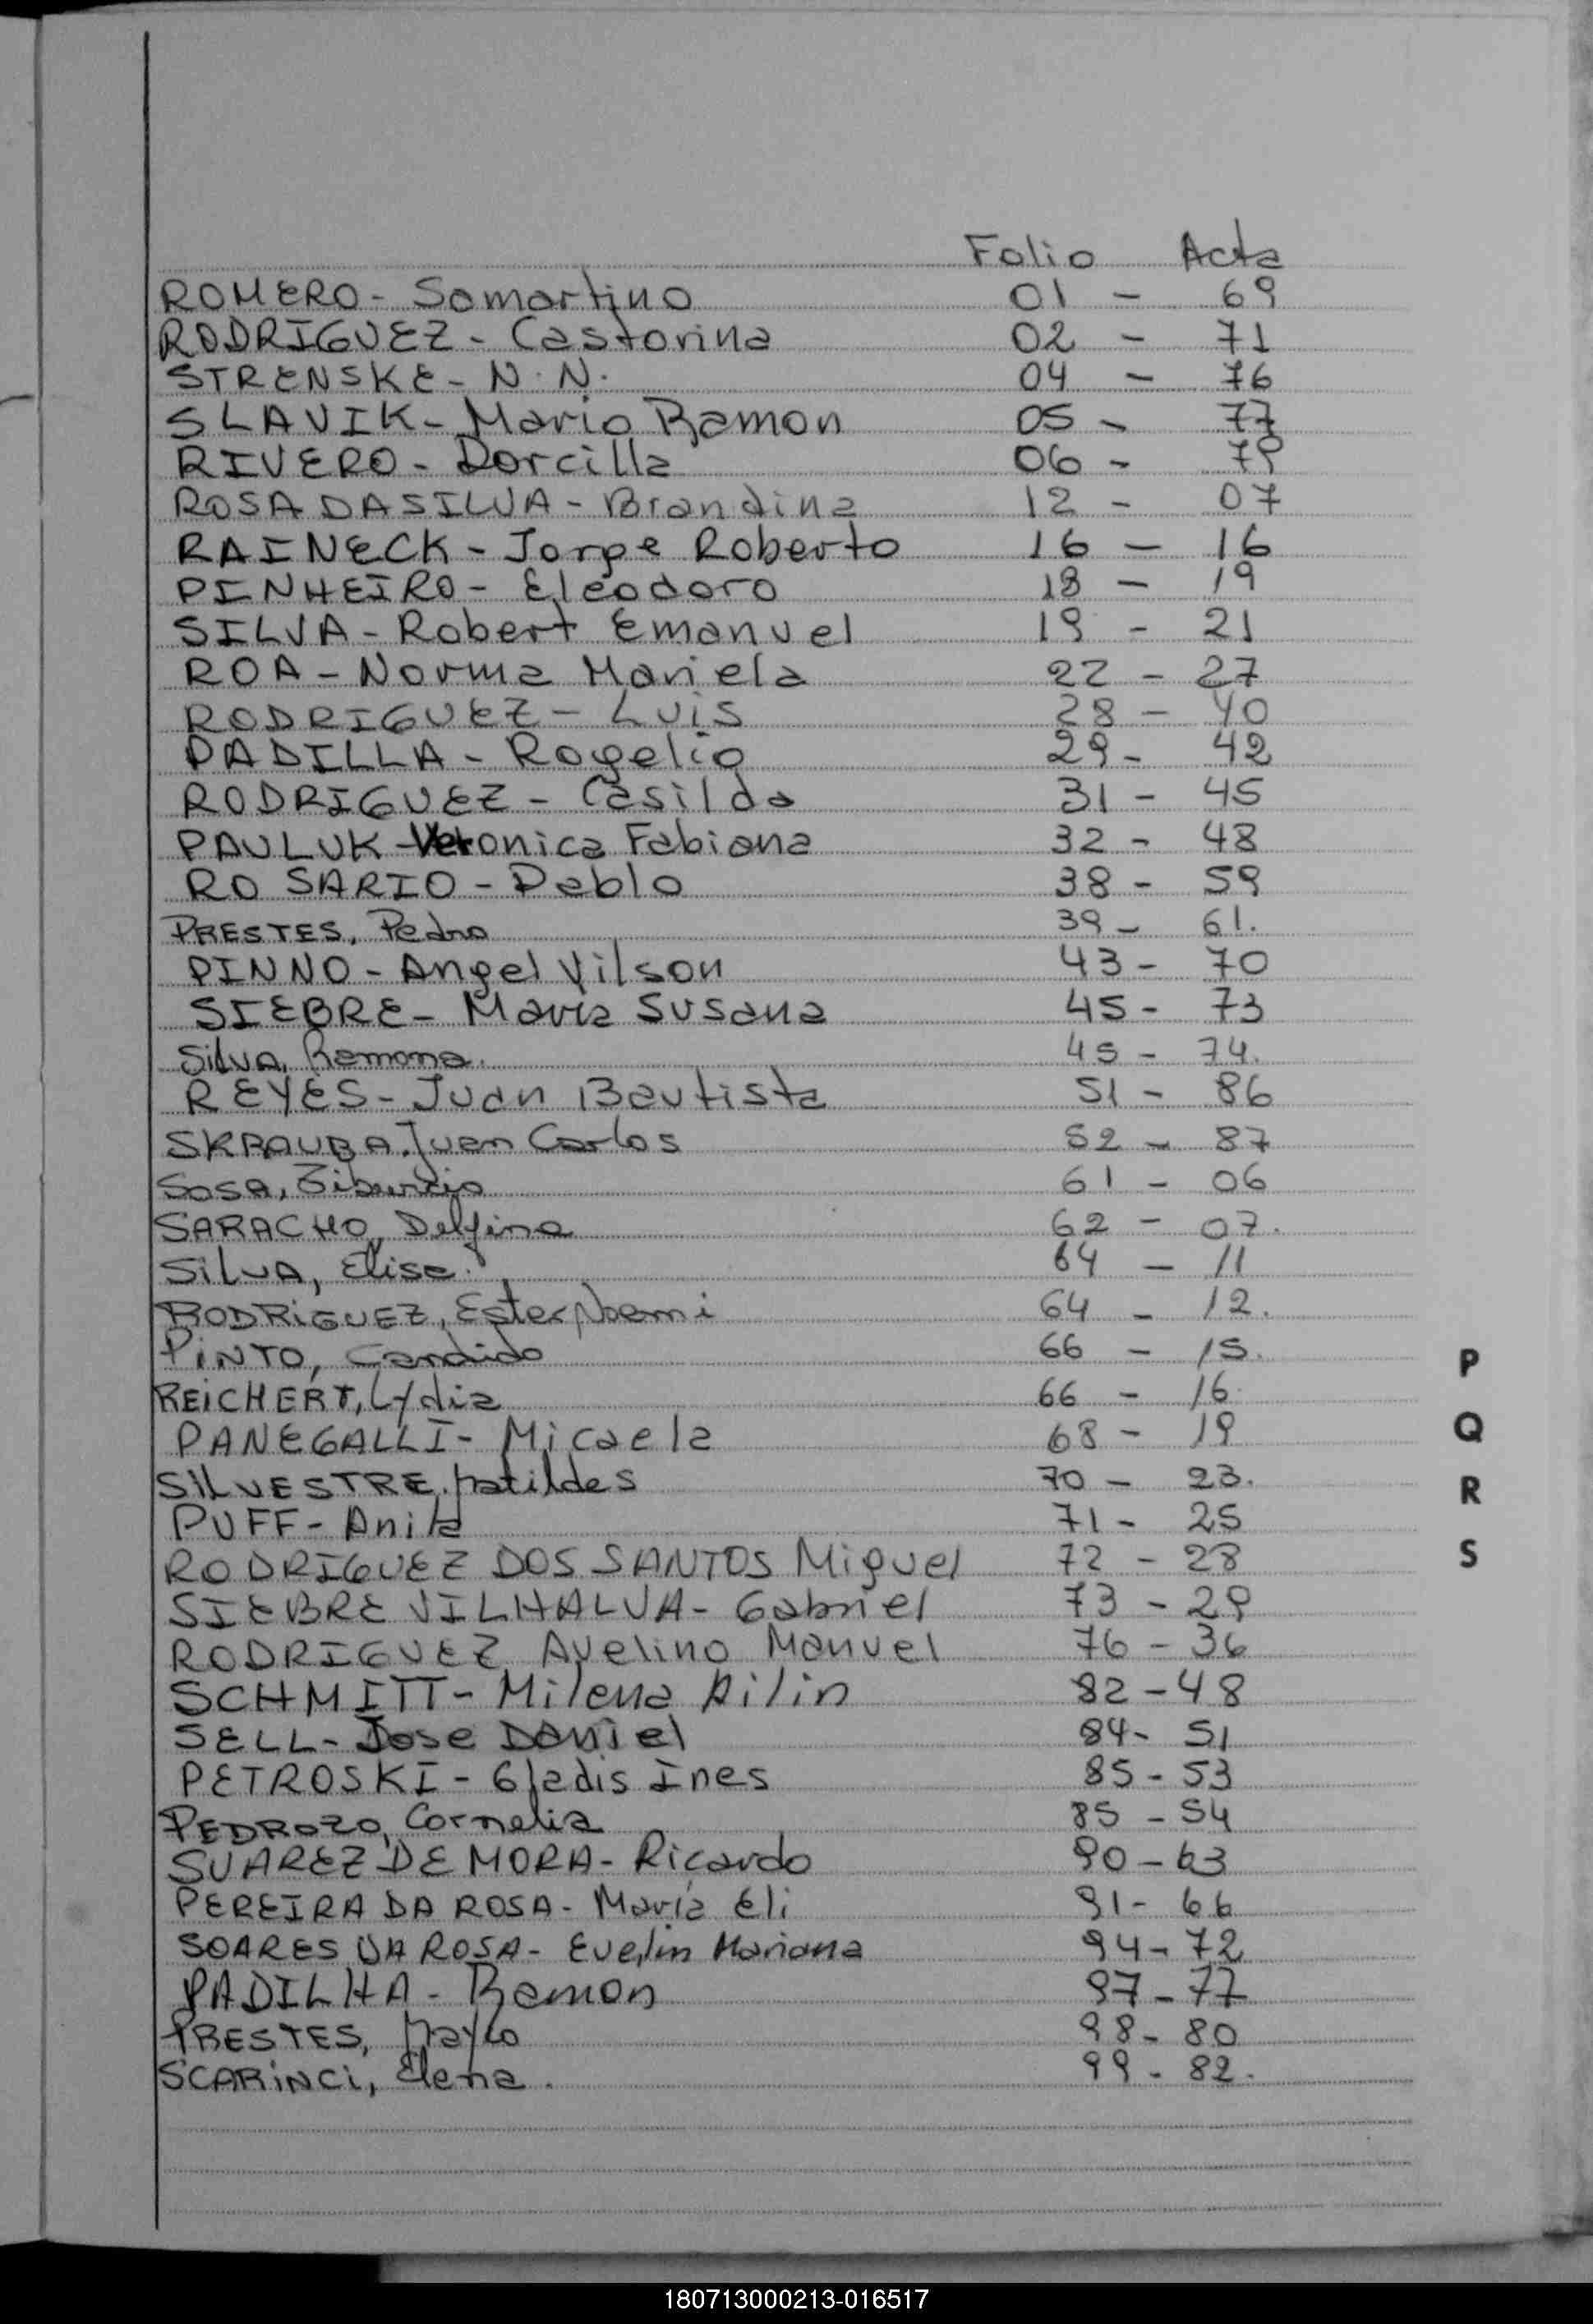 Folio Acta
ROMERO - Somartino 01 - 69
RODRIGUEZ - Castorina 02 - 71
STRENSKE - N. N. 04 - 76
SLAVIK - Mario Ramon 05 - 77
RIVERO - Dorcilla 06 - 79
ROSA DASILVA - Brandina 12 - 07
RAINECK - Jorge Roberto 16 - 16
PINHEIRO - Eleodoro 18 - 19
SILVA - Robert Emanuel 19 - 21
ROA - Norma Mariela 22 - 27
RODRIGUEZ - Luis 28 - 40
PADILLA - Rogelio 29 - 42
RODRIGUEZ - Casilda 31 - 45
PAULUK - Veronica Fabiana 32 - 48
ROSARIO - Pablo 38 - 59
PRESTES, Pedro 39 - 61.
PINNO - Angel Vilson 43 - 70
SIEBRE - Maria Susana 45 - 73
Silva, Ramona. 45 - 74.
REYES - Juan Bautista 51 - 86
SKRAUBA, Juan Carlos 52 - 87
Sosa, Tiburcio 61 - 06
SARACHO, Delfina 62 - 07.
SilvA, Elisa. 64 - 11
RODRiGUEZ, Ester Noemi 64 - 12.
PiNTO, Candido 66 - 15.
REiCHERT, Lydia 66 - 16.
PANEGALLI - Micaela 68 - 19
SILVESTRE, Matildes 70 - 23.
PUFF - Anita 71 - 25
RODRIGUEZ DOS SANTOS Miguel 72 - 28
SIEBRE VILHALVA - Gabriel 73 - 29
RODRIGUEZ Avelino Manuel 76 - 36
SCHMITT - Milena Ailin 82 - 48
SELL - Jose Daniel 84 - 51
PETROSKI - Gladis Ines 85 - 53
PEDROZO, Cornelia 85 - 54
SUAREZ DE MORA - Ricardo 90 - 63
PEREIRA DA ROSA - Maria Eli 91 - 66
SOARES DA ROSA - Evelin Mariana 94 - 72
PADILHA - Ramon 97 - 77
PRESTES, Mayko 98 - 80
SCARiNCi, Elena. 99 - 82.
P
Q
R
S
180713000213-016517